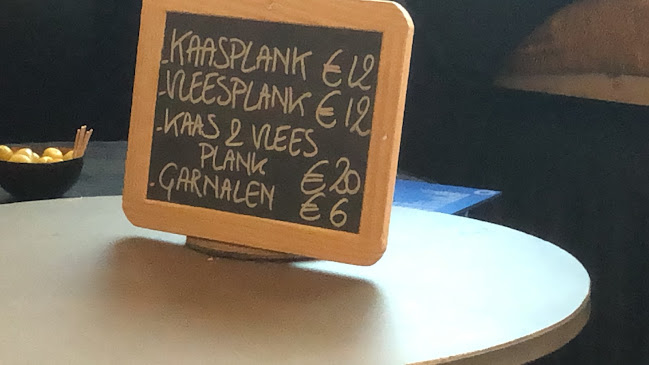 -KAASPLANK €12
-VLEESPLANK €12
-KAAS & VLEES
PLANK €20
-GARNALEN €6